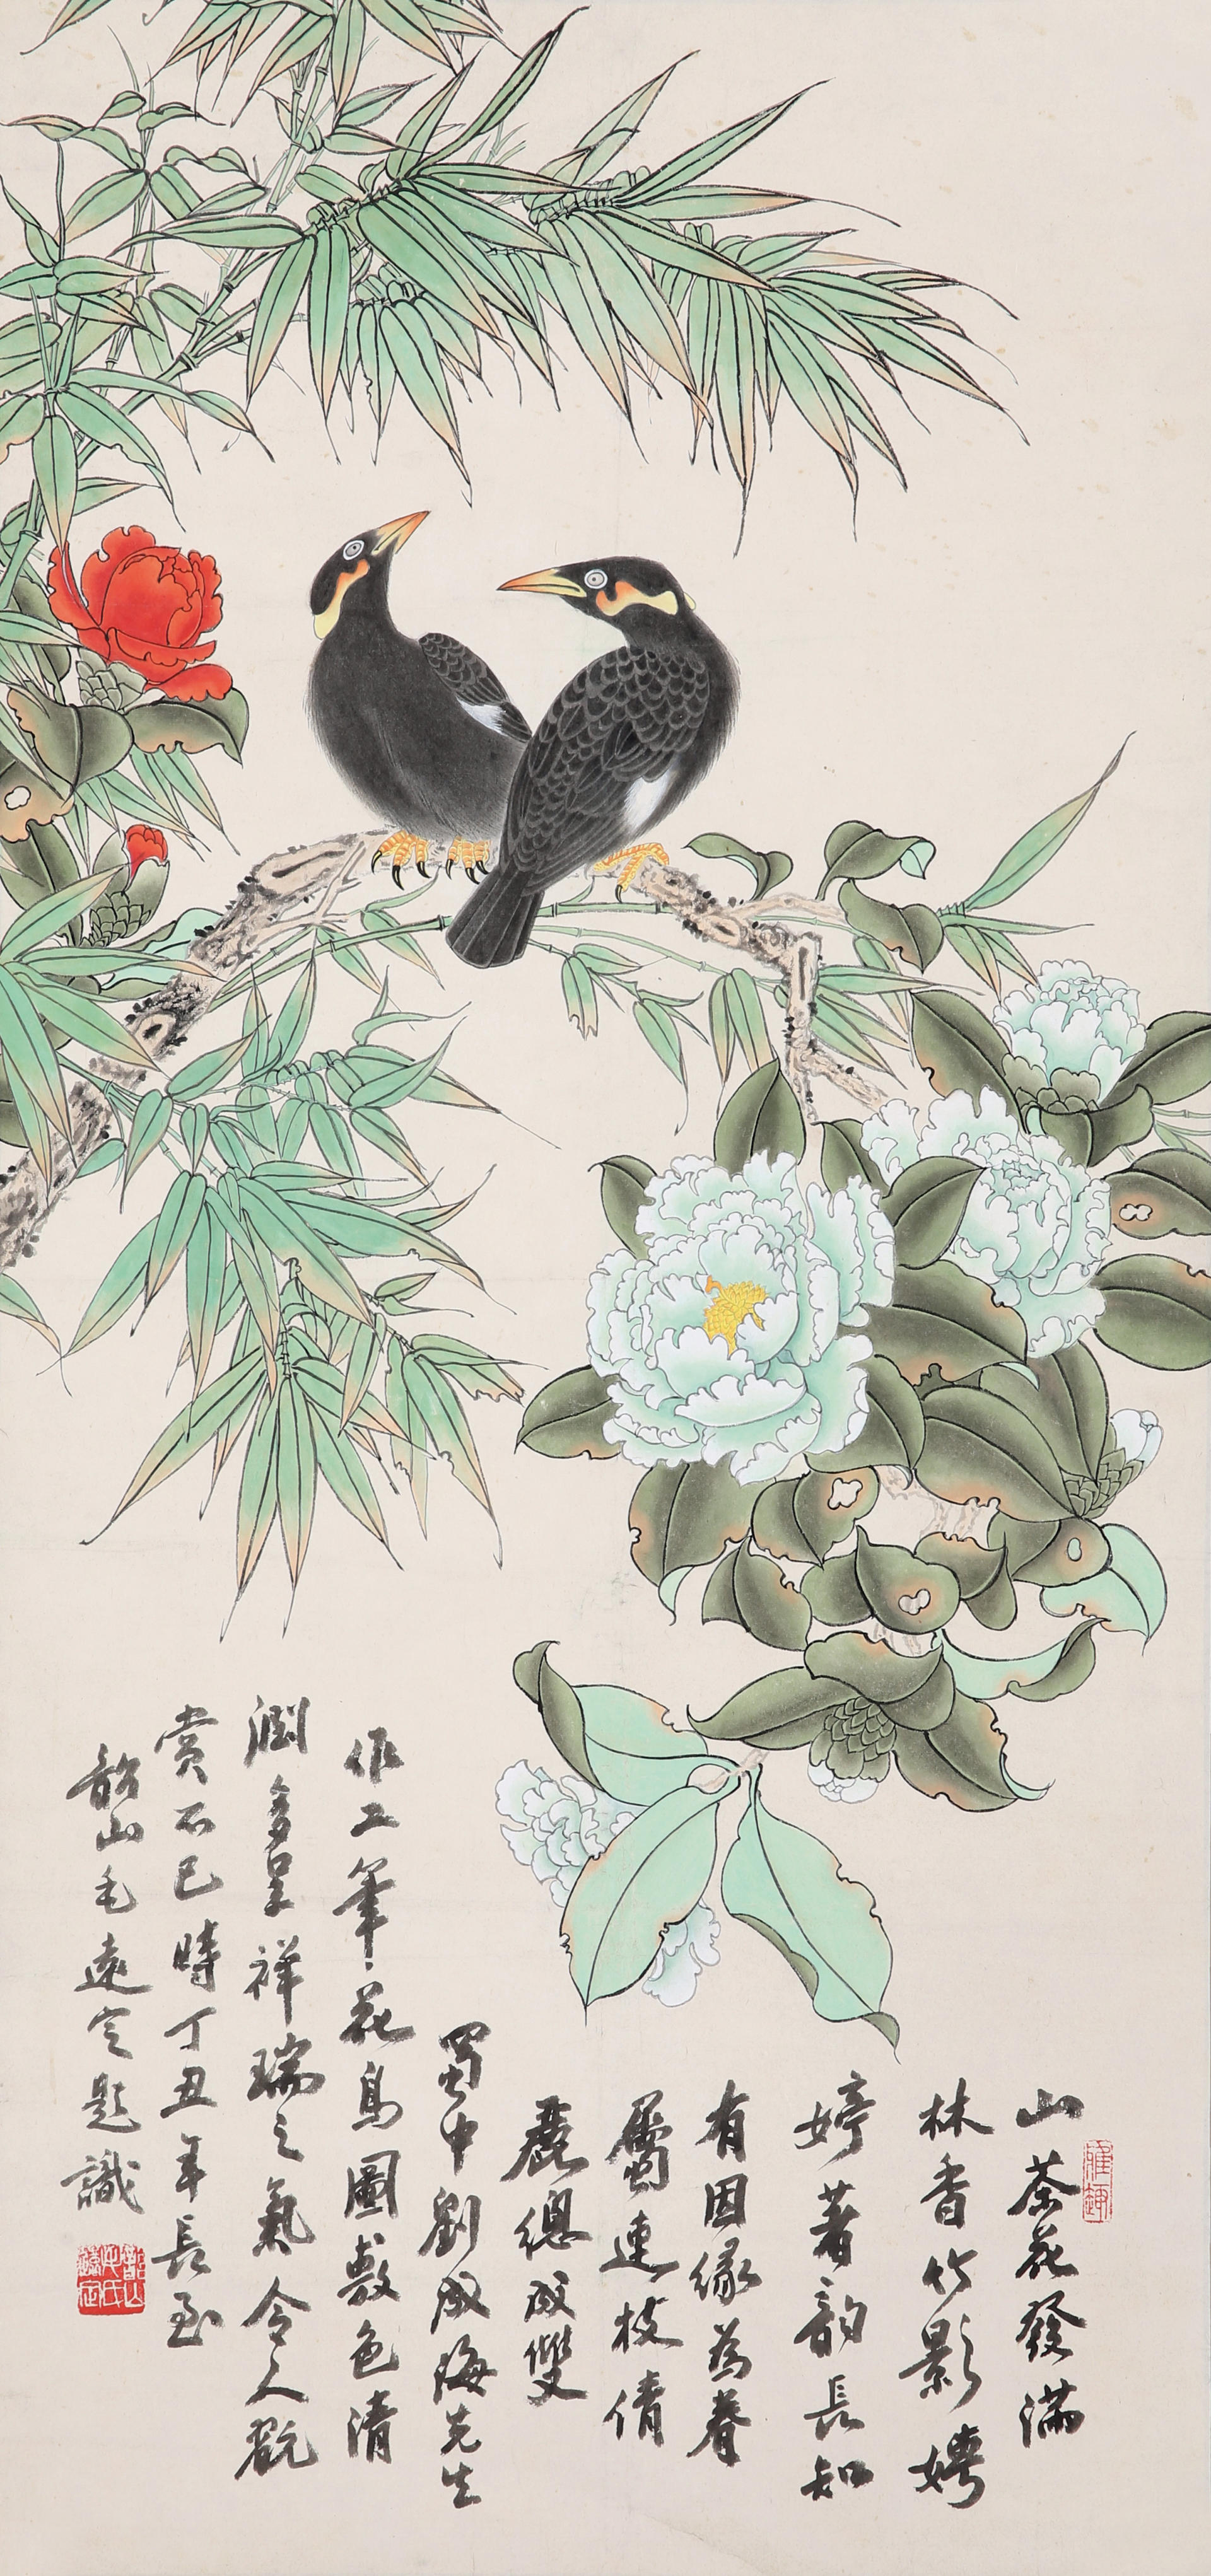 雅趣
山茶花發滿
林香竹影娉
婷著韵長知
有因緣為眷
屬連枝倩
麗總成雙
蜀中劉成海先生
作工筆花鳥圖敷色清
潤多呈祥瑞之氣令人觀
賞不已時丁丑年長至
韶山毛遠定題識
韶山毛氏遠定